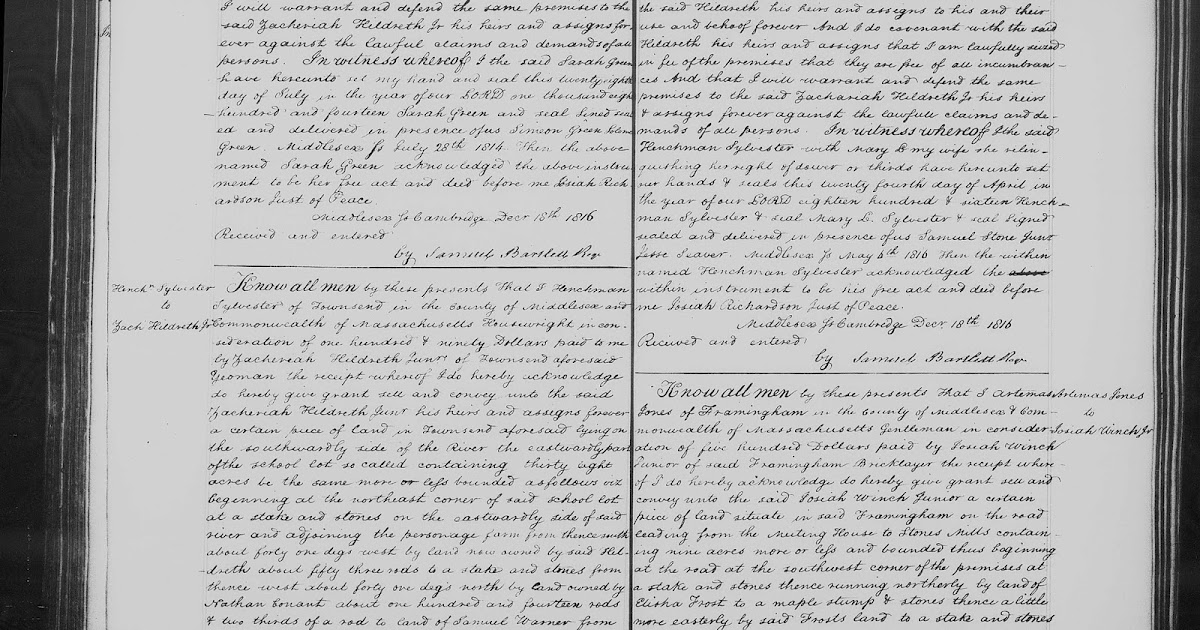 I will warrant and defend the same premises to the
said Zacheriah Hildreth Jr his heirs and assigns for-
ever against the lawful claims and demands of all
persons. In witness whereof I the said Sarah Green
have hereunto set my hand and seal this twenty eighth
day of July in the year of our LORD one thousand eigh
hundred and fourteen Sarah Green and seal Sined seal
ed and delivered in presence of us Simeon Green
Green. Middlesex Js July 28th 1814. Then the above
named Sarah Green acknowledged the above instru
ment to be her free act and deed before me Josiah Rich
ardson Just of Peace
Middlesex Js Cambridge Decr 18th 1816
Received and entered
by Samuel Bartlett Reg
Henchn Sylvester
to
Zach Hildreth Jr
Know all men by these presents That I Henchman
Sylvester of Townsend in the County of Middlesex and
Commonwealth of Massachusetts Housewright in con-
sideration of one hundred & ninety Dollars paid to me
by Zacheriah Hildreth Junr of Townsend aforesaid
Yeoman the receipt whereof I do hereby acknowledge
do hereby give grant sell and convey unto the said
Zacheriah Hildreth Junr his heirs and assigns forever
a certain piece of land in Townsend aforesaid lying on
the southwardly side of the River the eastwardly part
of the school lot so called containing thirty eight
acres be the same more or less bounded as follows viz
beginning at the northeast corner of said school lot
at a stake and stones on the eastwardly side of said
river and adjoining the parsonage farm from thence south
about forty one degs west by land now owned by said Hil-
dreth about fifty three rods to a stake and stones from
thence west about forty one deg's north by land owned by
Nathan Conant about one hundred and fourteen rods
& two thirds of a rod to land of Samuel Warner from
the said Hildreth his heirs and assigns to his and their
use and behoof forever And I do covenant with the said
Hildreth his heirs and assigns that I am lawfully seized
in fee of the premises that they are free of all incumbran-
ces And that I will warrant and defend the same
premises to the said Zachariah Hildreth Jr his heirs
& assigns forever against the lawfull claims and de-
mands of all persons. In witness whereof I the said
Henchman Sylvester with Mary L my wife she relin-
quishing her right of dower or thirds have hereunto set
our hands & seals this twenty fourth day of April in
the year of our LORD eighteen hundred & sixteen Hench-
man Sylvester & seal Mary L. Sylvester & seal Signed
sealed and delivered in presence of us Samuel Stone Junr
Jesse Seaver. Middlesex Js May 6th 1816 Then the within
named Henchman Sylvester acknowledged the above
within instrument to be his free act and deed before
me Josiah Richardson Just of Peace
Middlesex Js Cambridge Decr 18th 1816
Received and entered
by Samuel Bartlett Reg
Know all men by these presents That I Artemas
Jones of Framingham in the County of Middlesex & Com-
monwealth of Massachusetts Gentleman in consider
ation of five hundred Dollars paid by Josiah Winch
Junior of said Framingham Bricklayer the receipt where-
of I do hereby acknowledge do hereby give grant sell and
convey unto the said Josiah Winch Junior a certain
piece of land situate in said Framingham on the road
leading from the Meeting House to Stones Mills contain-
ing nine acres more or less and bounded thus beginning
at the road at the southwest corner of the premises at
a stake and stones thence running northerly by land of
Elisha Frost to a maple stump & stones thence a little
more easterly by said Frosts land to a stake and stones
Artemas Jones
to
Josiah Winch Jr